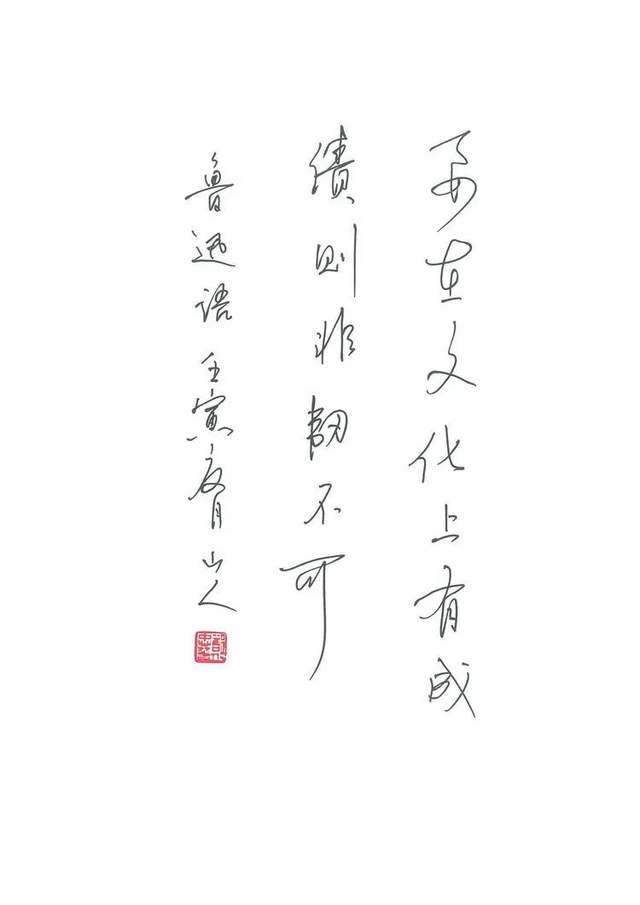 要在文化上有成
绩则非韧不可
鲁迅语 壬寅夏 山人